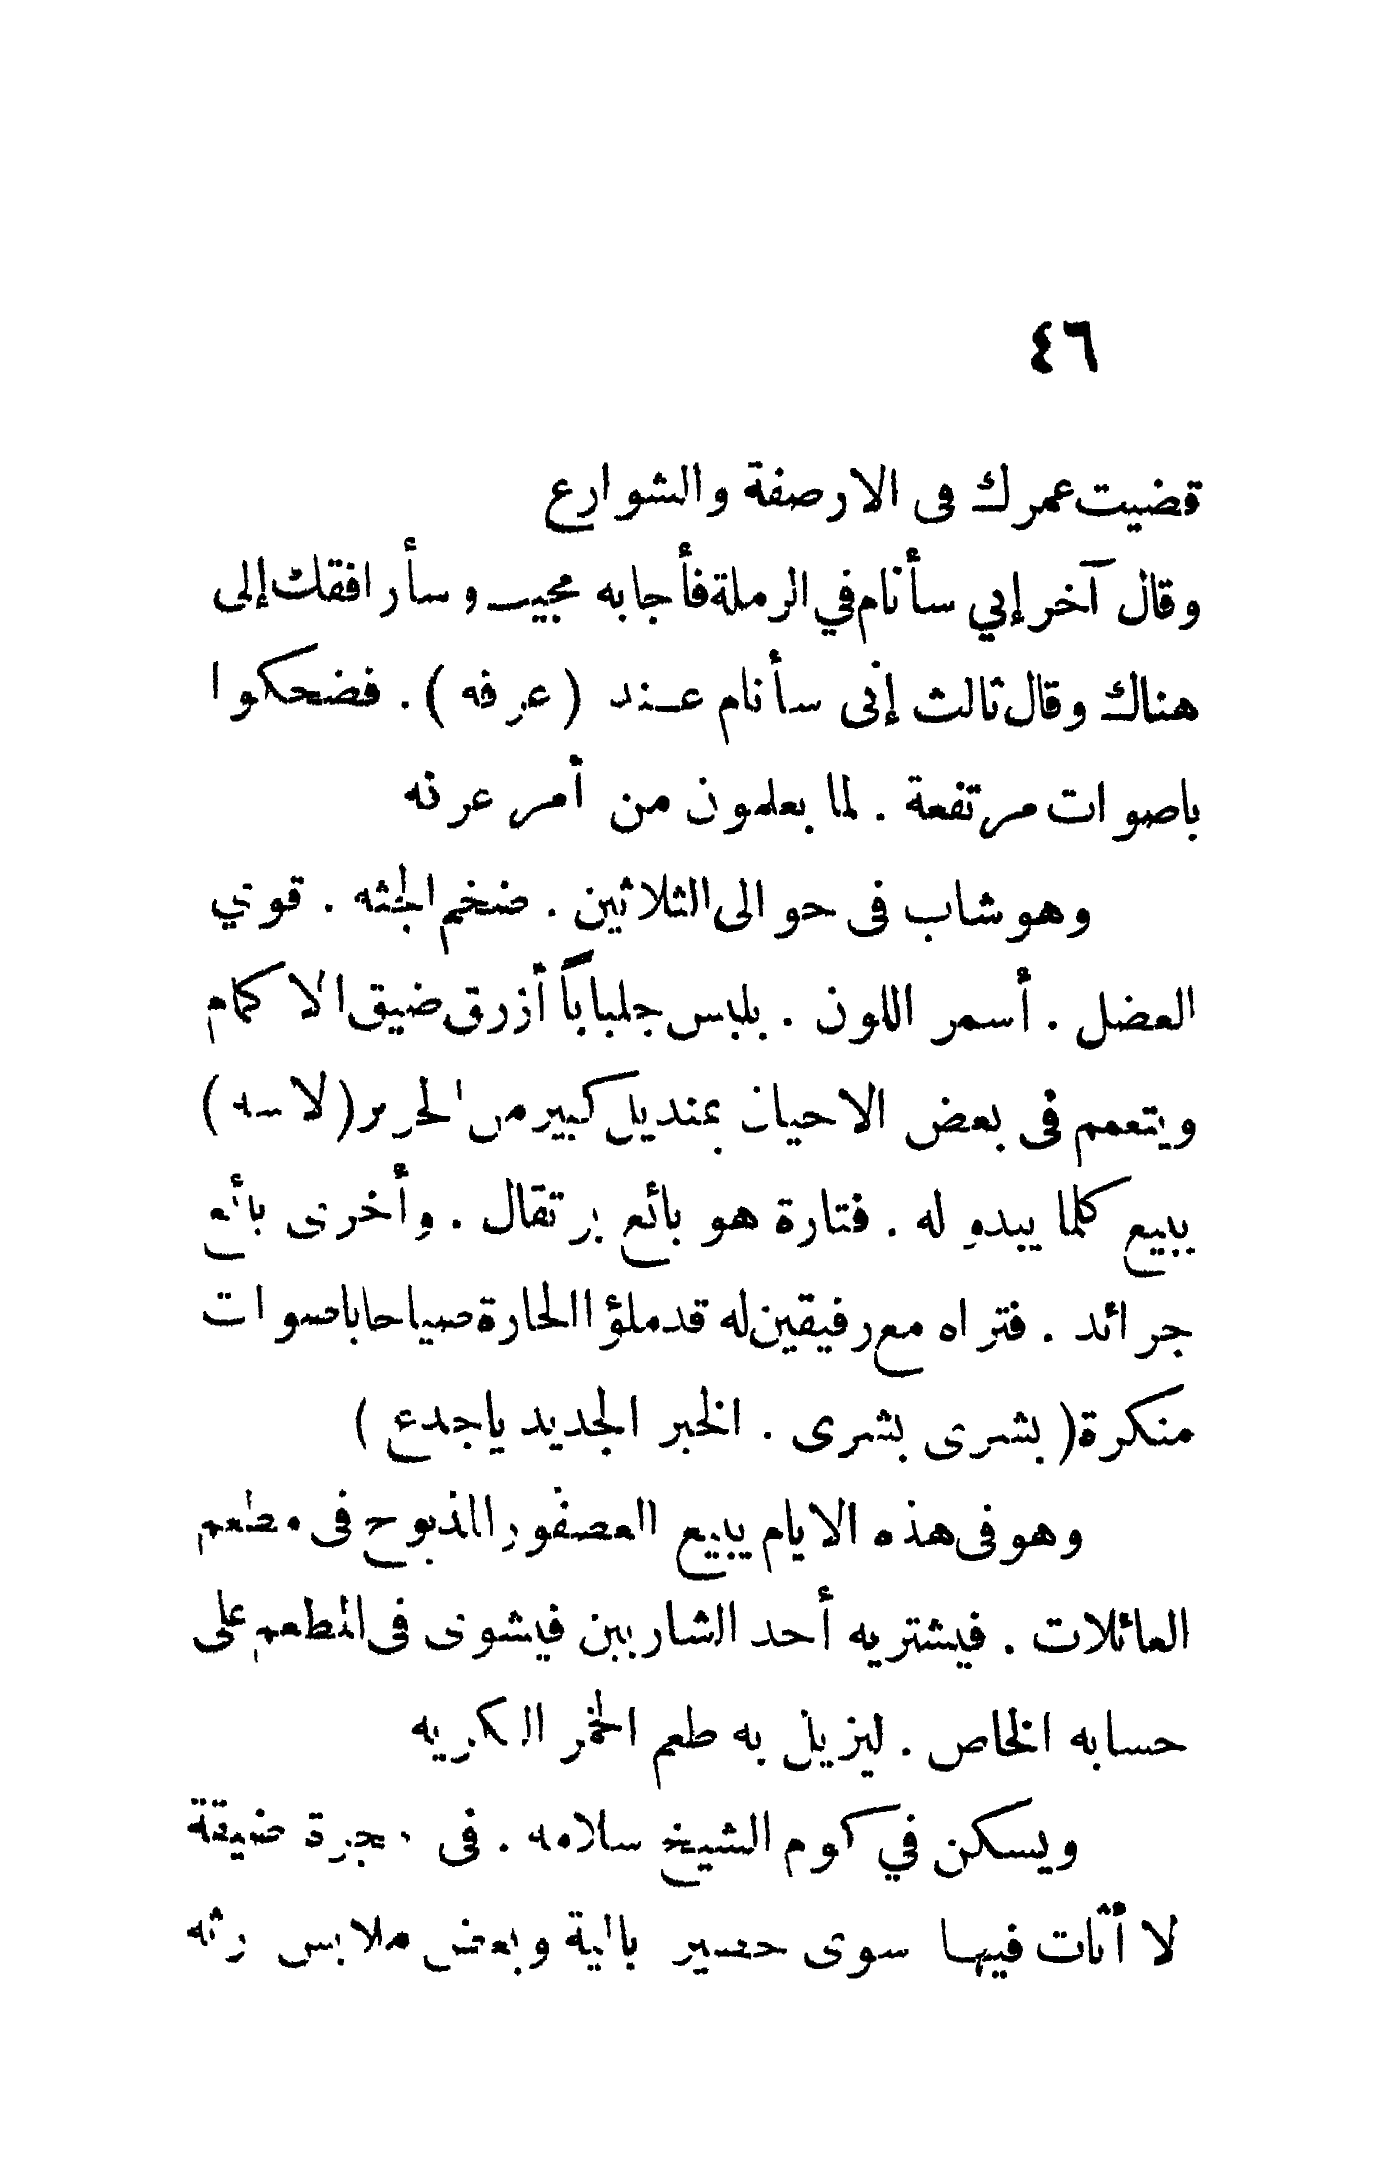 ٤٦
قضيت عمرك فى الارصفة والشوارع
وقال آخر إني سأنام في الرملة فأجابه مجيب وسأرافقك إلى
هناك وقال ثالث إنى سأنام عند ( عرفه ) . فضحكوا
باصوات مرتفعة . لما يعلمون من أمر عرفه
وهو شاب فى حوالى الثلاثين . ضخم الجثه . قوي
العضل . أسمر اللون . يلبس جلباباً أزرق ضيق الاكمام
ويتعمم فى بعض الاحيان بمنديل كبير من الحرير ( لاسه )
يبيع كلما يبدو له . فتارة هو بائع برتقال . وأخرى بائع
جرائد . فتراه مع رفيقين له قد ملؤا الحارة صياحا باصوات
منكرة ( بشرى بشرى . الخبر الجديد ياجدع )
وهو فى هذه الايام يبيع العصفور المذبوح فى مطعم
العائلات . فيشتريه أحد الشاربين فيشوى فى المطعم على
حسابه الخاص . ليزيل به طعم الخمر الكريه
ويسكن في كوم الشيخ سلامه . فى حجرة ضيقة
لا أثاث فيها سوى حصير بالية وبعض ملابس رثه